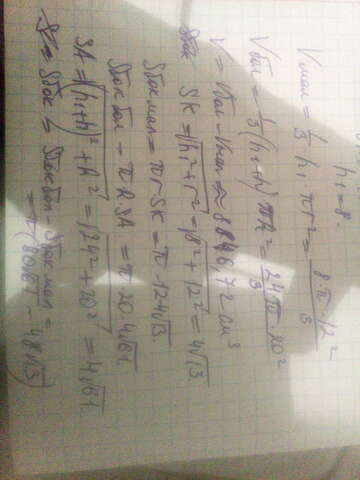 h₁ = 8.
Vмал = 1/3 h₁ · πr² = 8·π·12²/3
Vбол = 1/3 (h₁+h) πR² = 24π·20²/3
V = Vбол − Vмал ≈ 8846,72 см³
SK = √h₁²+r² = √8²+12² = 4√13
Sбок мал = πr·SK = π·12·4√13
Sбок бол = πR·SA = π·20·4√61
SA = √(h₁+h)²+R² = √24²+20² = 4√61
Sбок = Sбок бол − Sбок мал =
= π(80√61 − 48√13)